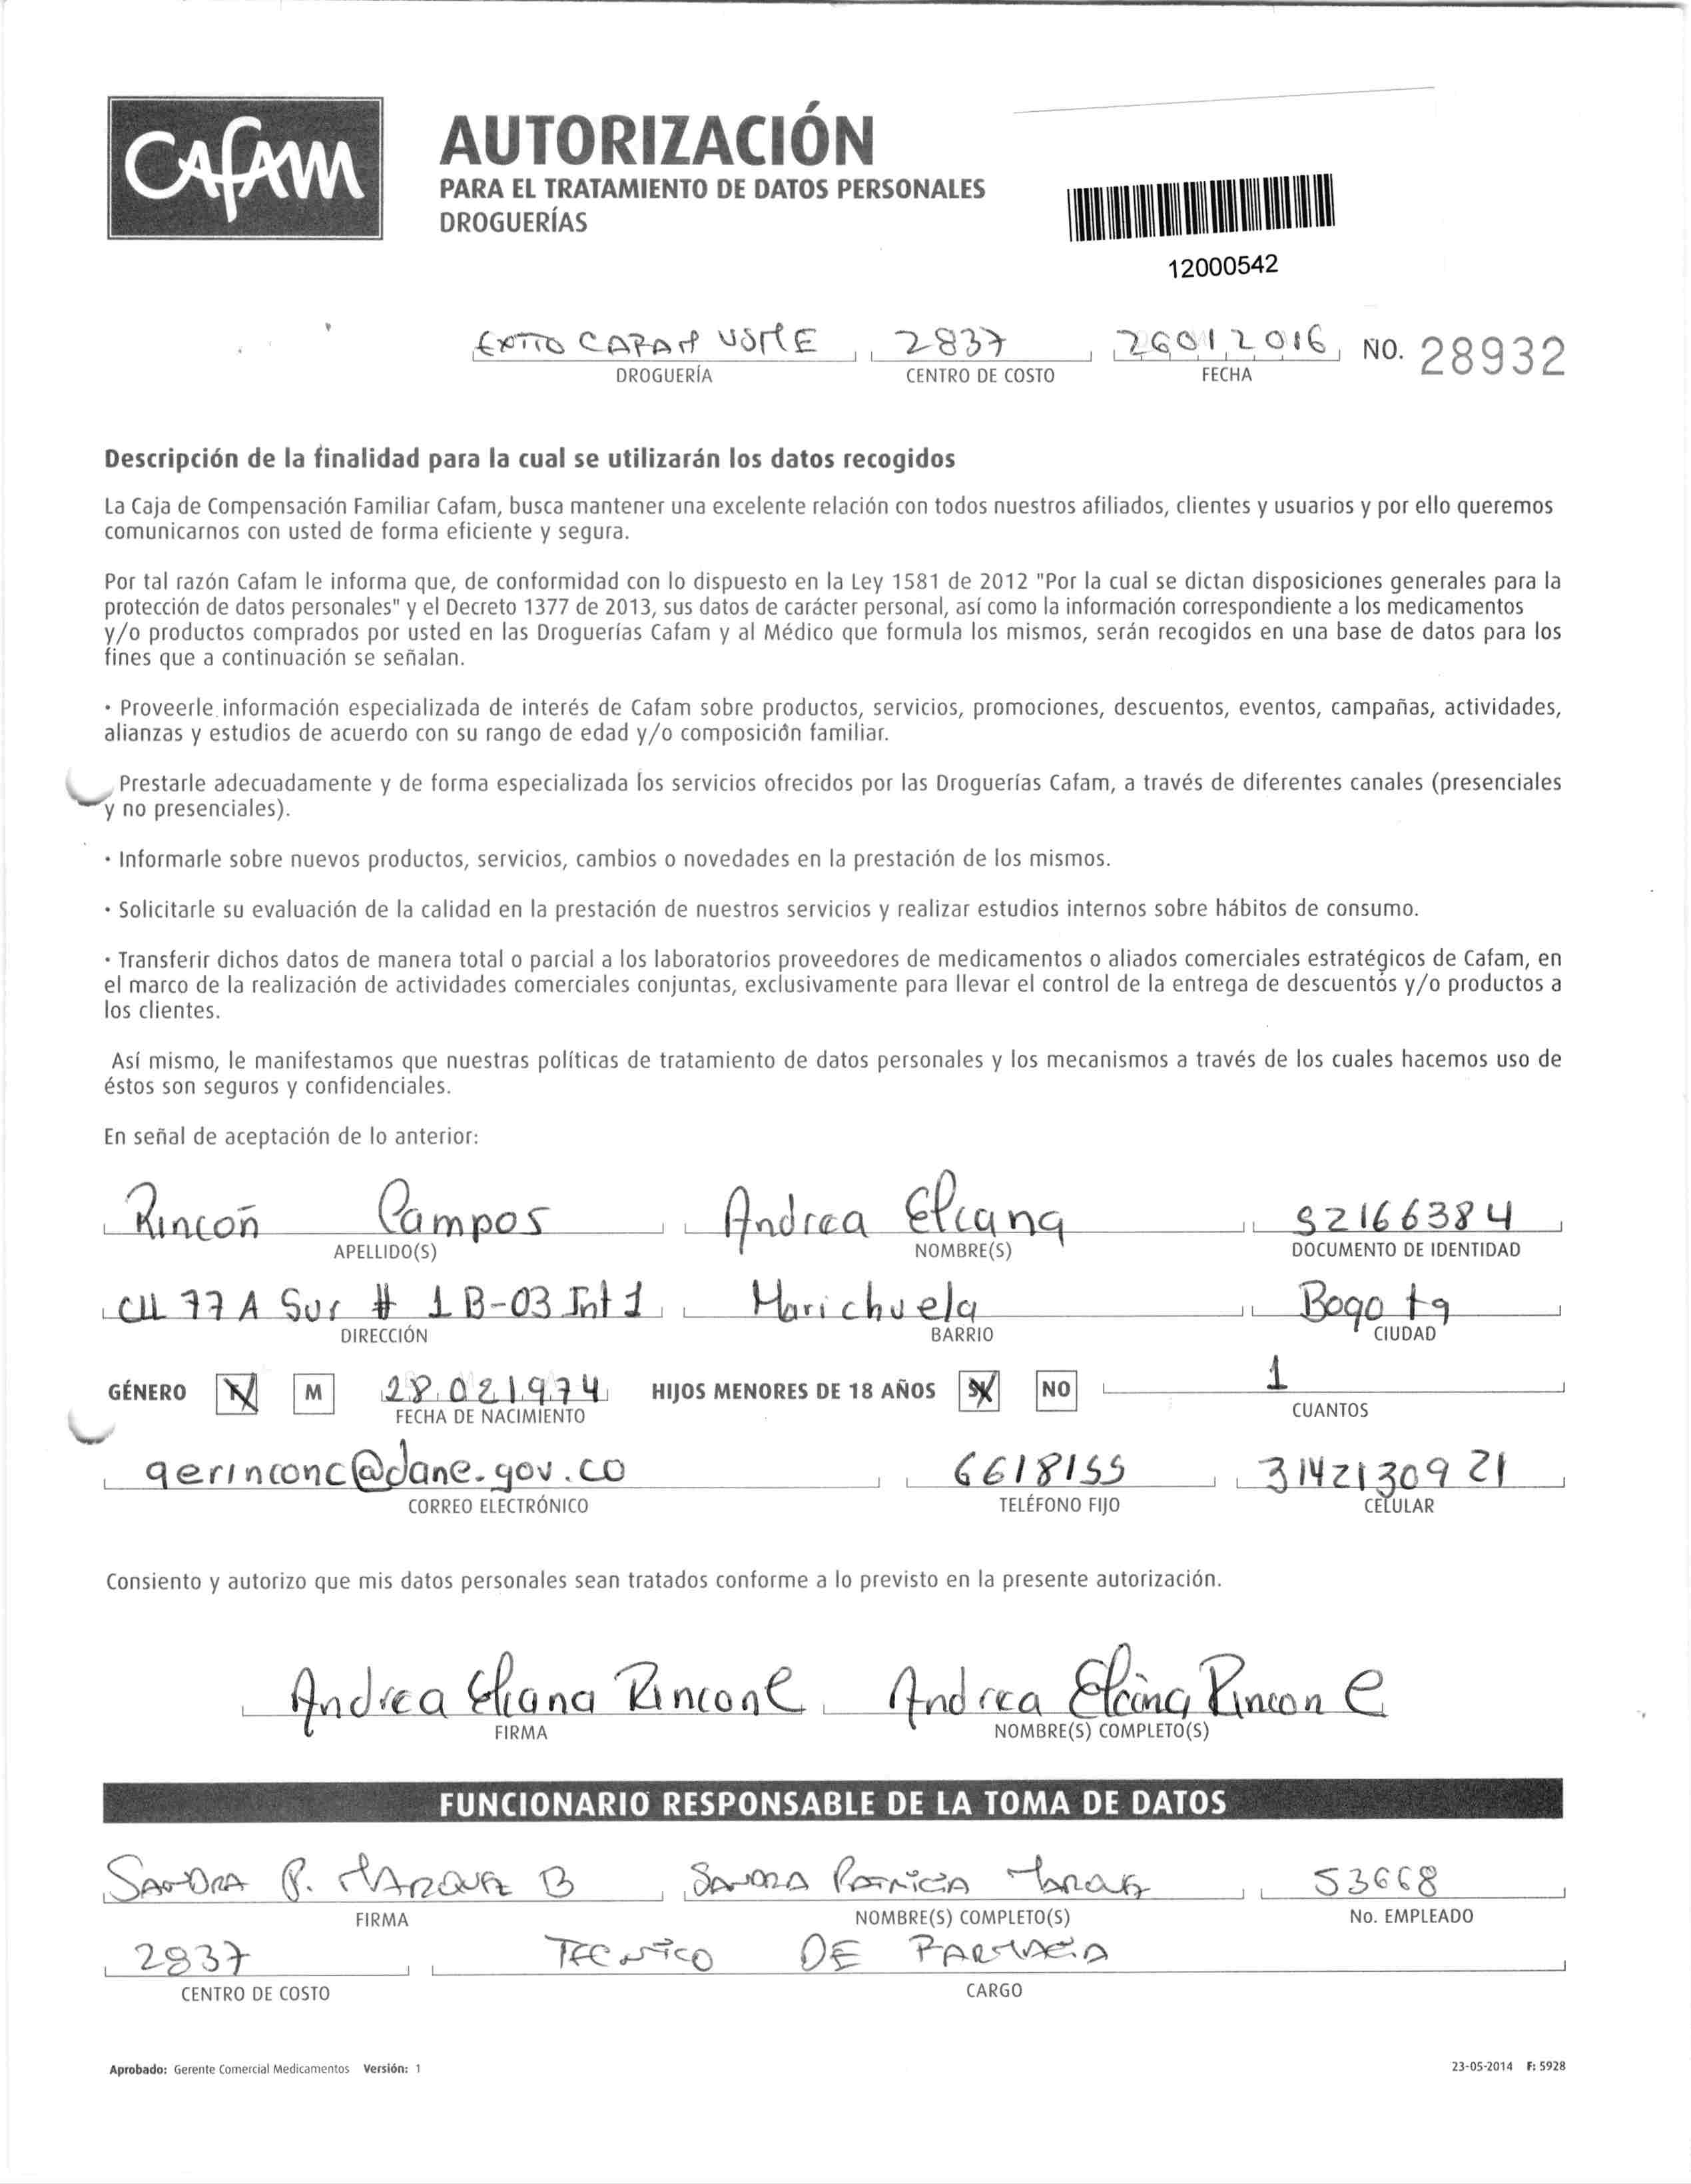 CAFAM
AUTORIZACIÓN
PARA EL TRATAMIENTO DE DATOS PERSONALES
DROGUERÍAS
12000542
EXITO CAFAM USME 2837 26012016 NO. 28932
DROGUERÍA CENTRO DE COSTO FECHA
Descripción de la finalidad para la cual se utilizarán los datos recogidos
La Caja de Compensación Familiar Cafam, busca mantener una excelente relación con todos nuestros afiliados, clientes y usuarios y por ello queremos
comunicarnos con usted de forma eficiente y segura.
Por tal razón Cafam le informa que, de conformidad con lo dispuesto en la Ley 1581 de 2012 "Por la cual se dictan disposiciones generales para la
protección de datos personales" y el Decreto 1377 de 2013, sus datos de carácter personal, así como la información correspondiente a los medicamentos
y/o productos comprados por usted en las Droguerías Cafam y al Médico que formula los mismos, serán recogidos en una base de datos para los
fines que a continuación se señalan.
· Proveerle información especializada de interés de Cafam sobre productos, servicios, promociones, descuentos, eventos, campañas, actividades,
alianzas y estudios de acuerdo con su rango de edad y/o composición familiar.
Prestarle adecuadamente y de forma especializada los servicios ofrecidos por las Droguerías Cafam, a través de diferentes canales (presenciales
y no presenciales).
· Informarle sobre nuevos productos, servicios, cambios o novedades en la prestación de los mismos.
· Solicitarle su evaluación de la calidad en la prestación de nuestros servicios y realizar estudios internos sobre hábitos de consumo.
· Transferir dichos datos de manera total o parcial a los laboratorios proveedores de medicamentos o aliados comerciales estratégicos de Cafam, en
el marco de la realización de actividades comerciales conjuntas, exclusivamente para llevar el control de la entrega de descuentos y/o productos a
los clientes.
Así mismo, le manifestamos que nuestras políticas de tratamiento de datos personales y los mecanismos a través de los cuales hacemos uso de
éstos son seguros y confidenciales.
En señal de aceptación de lo anterior:
Rincon Campos Andrea Eliana 52166384
APELLIDO(S) NOMBRE(S) DOCUMENTO DE IDENTIDAD
CLL 77 A Sur # 1 B-03 Int 1 Marichuela Bogota
DIRECCIÓN BARRIO CIUDAD
GÉNERO M 28021974 HIJOS MENORES DE 18 AÑOS SI NO 1
FECHA DE NACIMIENTO CUANTOS
aerinconc@dane.gov.co 6618155 3142130921
CORREO ELECTRÓNICO TELÉFONO FIJO CELULAR
Consiento y autorizo que mis datos personales sean tratados conforme a lo previsto en la presente autorización.
Andrea Eliana Rincon C Andrea Eliana Rincon C
FIRMA NOMBRE(S) COMPLETO(S)
FUNCIONARIO RESPONSABLE DE LA TOMA DE DATOS
SANDRA P. MARQUEZ B SANDRA PATRICIA 53668
FIRMA NOMBRE(S) COMPLETO(S) No. EMPLEADO
2837 TECNICO DE FARMACIA
CENTRO DE COSTO CARGO
Aprobado: Gerente Comercial Medicamentos Versión: 1 23-05-2014 F: 5928